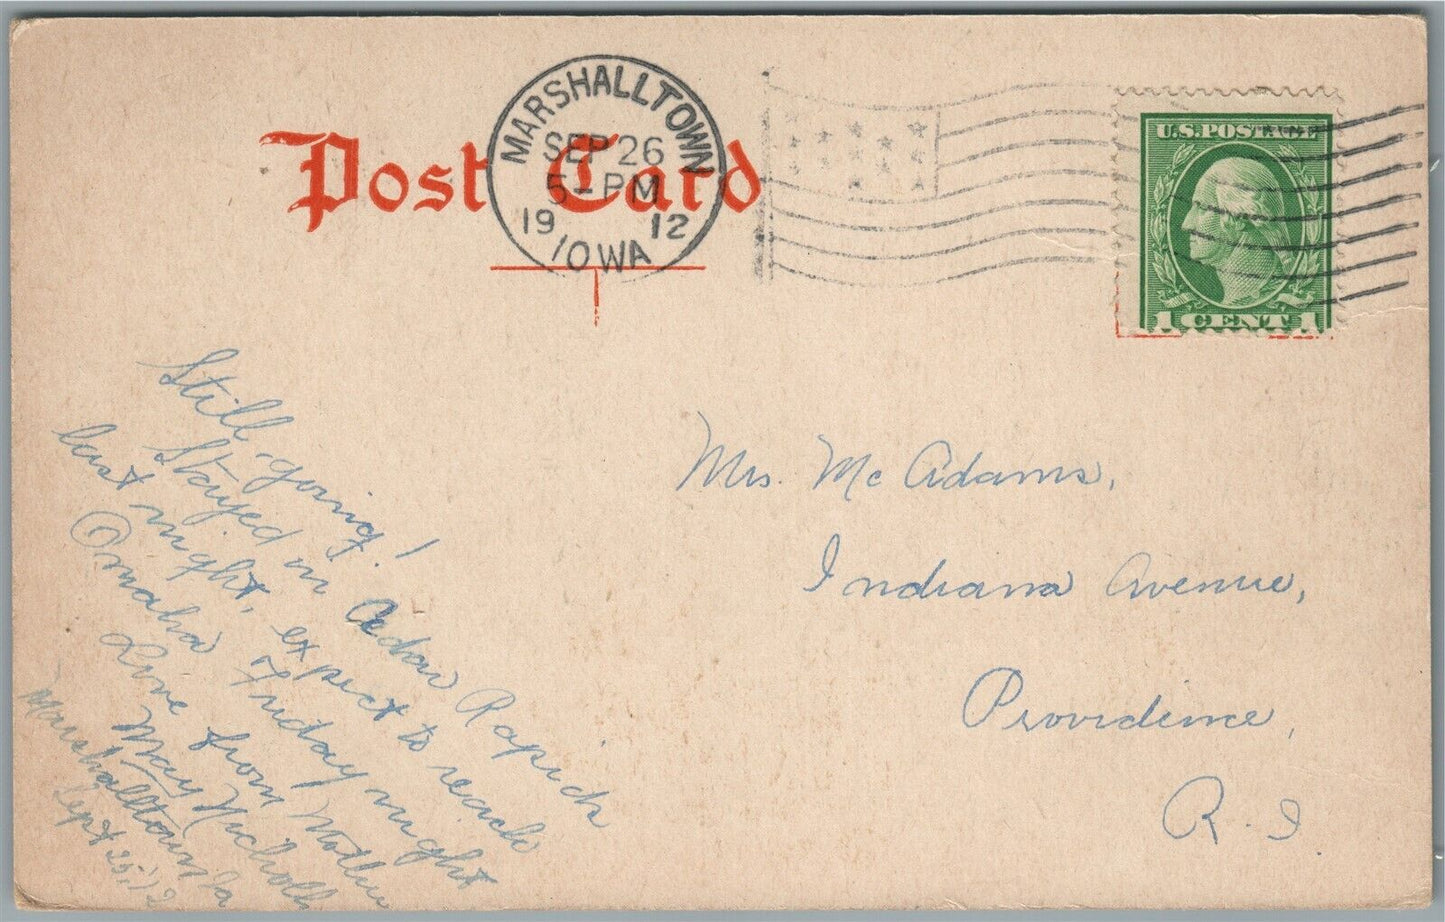 Post Card
MARSHALLTOWN
SEP 26
5-PM
19 12
IOWA
U.S. POSTAGE
1 CENT 1
Still going!
Stayed in Cedar Rapids
last night, expect to reach
Omaha Friday night
Love from Mother
May Nicholls
Marshalltown Ia
Sept 25, 12
Mrs. Mc Adams,
Indiana Avenue,
Providence,
R. I